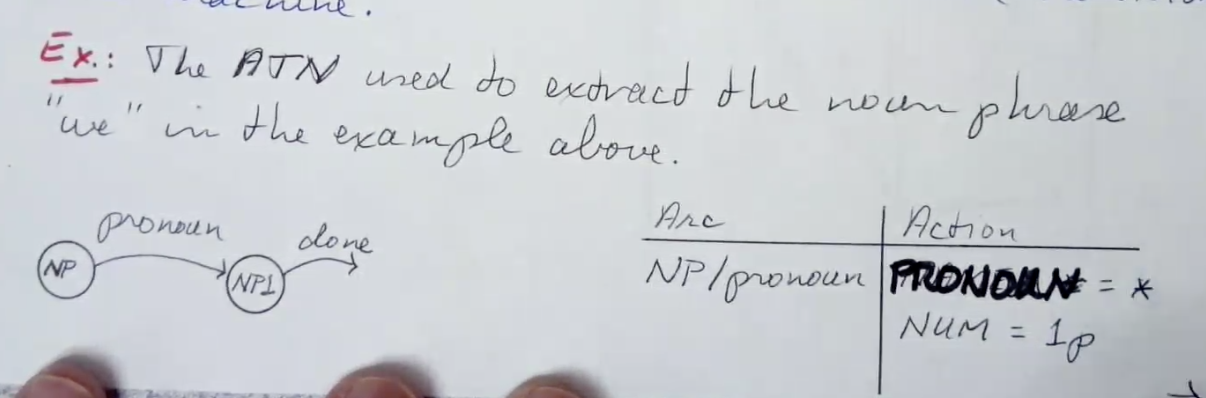 Ex.: The ATN used to extract the noun phrase
"we" in the example above.
pronoun
done
NP
NP1
Arc
Action
NP/pronoun
PRONOUN = *
NUM = 1p